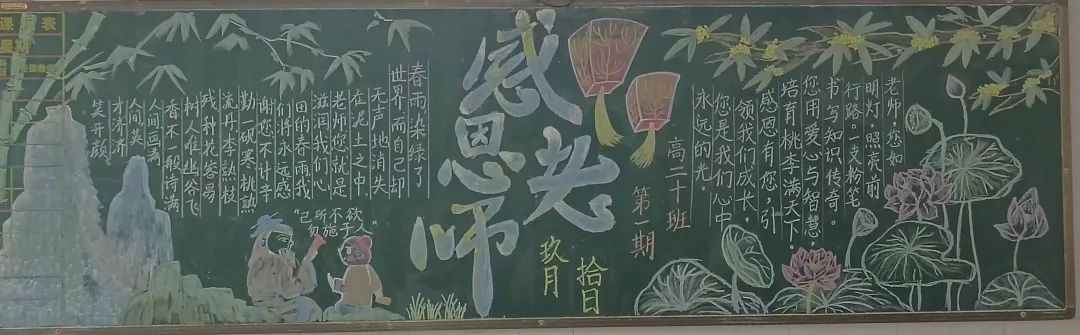 老师，您如
明灯，照亮前
行路。一支粉笔
书写知识传奇。
您用爱心与智慧，
培育桃李满天下。
感恩有您，引
领我们成长。
您是我们心中
永远的光。
高二十班
第一期
感恩老师
玖月
拾日
春雨染绿了
世界而自己却
无声地消失
在泥土之中
老师您就是
滋润我们心
田的春雨我
们将永远感
谢您不计辛
勤一砚寒桃熟
流丹李熟枝
残种花容易
树人难幽谷飞
香不一般诗满
人间画满
人间英
才济济
笑开颜
"己所不欲
勿施于人"